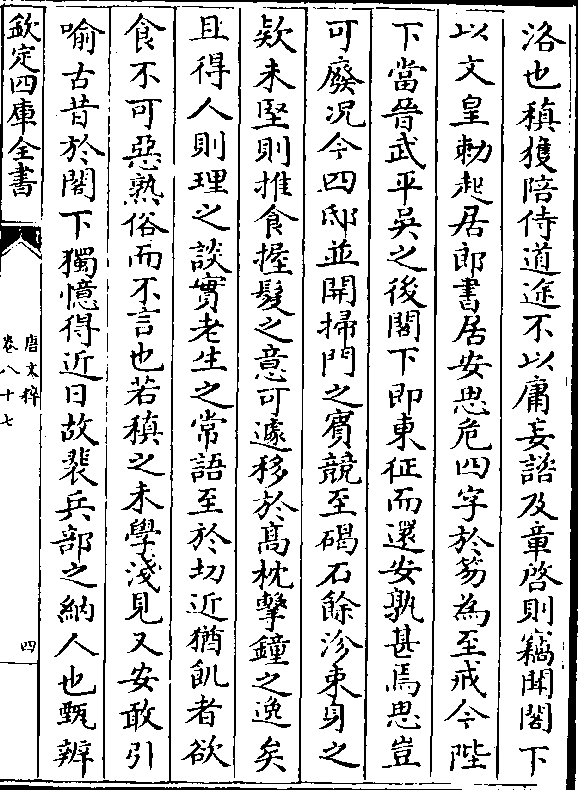 洛也稹獲陪侍道途不以庸妄諮及章啓則竊聞閤下
以文皇勅起居郎書居安思危四字於笏為至戒今陛
下當晉武平吳之後閤下即東征而還安孰甚焉思豈
可廢况今四邸並開掃門之賓競至碣石餘沴束身之
欵未堅則推食握髮之意可遽移於髙枕擊鐘之逸矣
且得人則理之談實老生之常語至於切近猶飢者欲
食不可惡熟俗而不言也若稹之末學淺見又安敢引
喻古昔於閤下獨憶得近日故裴兵部之納人也甄辨
欽定四庫全書
唐文粹
卷八十七
四